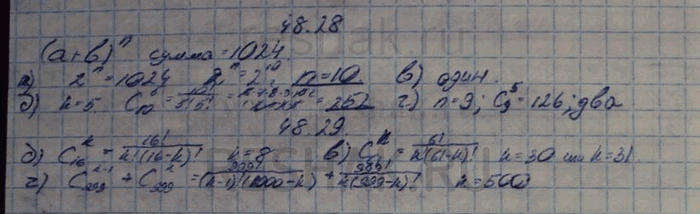 48.28
(a+b)ⁿ сумма = 1024.
а) 2ⁿ = 1024 2ⁿ = 2¹⁰, n = 10. в) один.
б) k = 5. = 252 г) n = 9; C₉⁵ = 126; два
48.29.
а) C₁₆ᵏ = 16!/k!(16-k)! k = 8 в) = 61!/k!(61-k)! k = 30 или k = 31.
г) C₉₉₉ᵏ⁻¹ + C₉₉₉ᵏ = 999!/(k-1)!(1000-k)! + 999!/k!(999-k)! k = 500